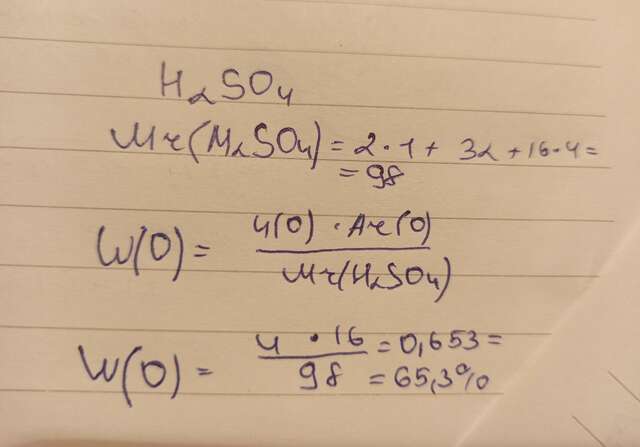 H₂SO₄
Mr(H₂SO₄) = 2·1 + 32 + 16·4 =
= 98
W(O) = 4(O) · Ar(O) / Mr(H₂SO₄)
W(O) = 4 · 16 / 98 = 0,653 =
= 65,3%